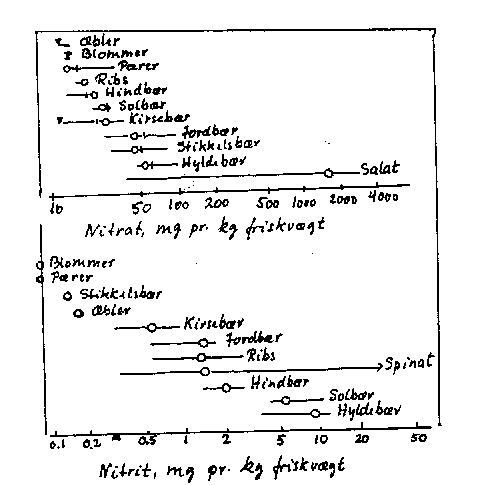 Æbler
Blommer
Pærer
Ribs
Hindbær
Solbær
Kirsebær
Jordbær
Stikkelsbær
Hyldebær
Salat
10 50 100 200 500 1000 2000 4000
Nitrat, mg pr. kg friskvægt
Blommer
Pærer
Stikkelsbær
Æbler
Kirsebær
Jordbær
Ribs
Spinat
Hindbær
Solbær
Hyldebær
0.1 0.2 0.5 1 2 5 10 20 50
Nitrit, mg pr. kg friskvægt